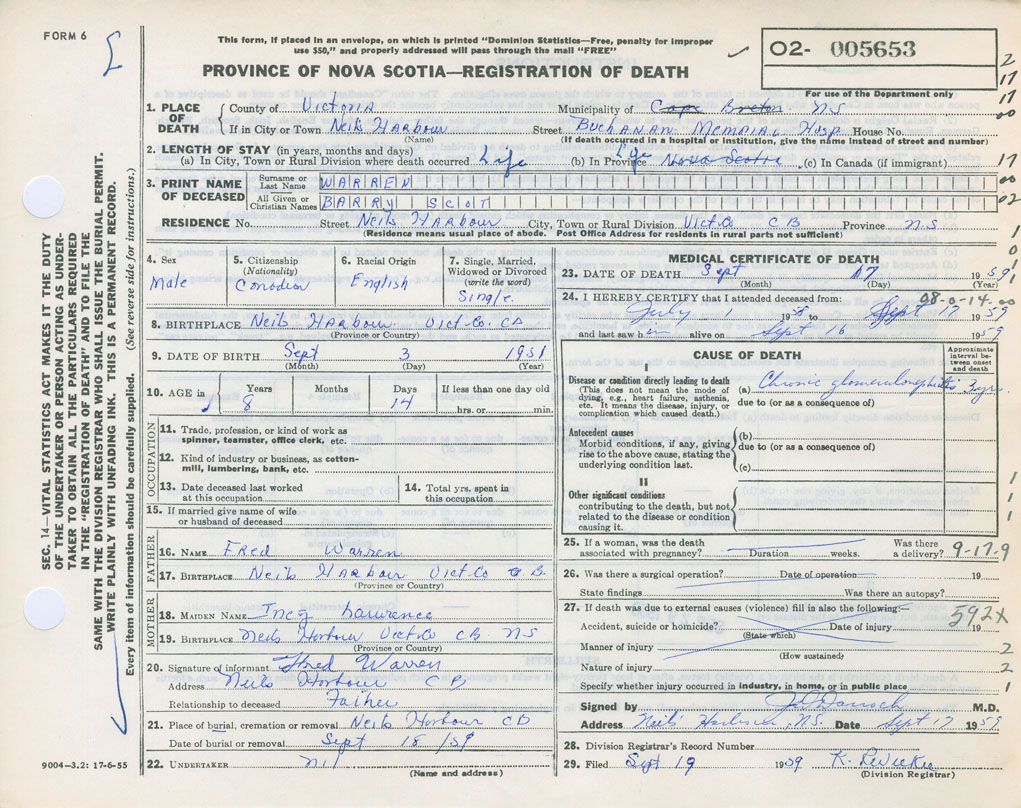 FORM 6
This form, if placed in an envelope, on which is printed "Dominion Statistics—Free, penalty for improper
use $50," and properly addressed will pass through the mail "FREE"
O2- 005653
PROVINCE OF NOVA SCOTIA—REGISTRATION OF DEATH
For use of the Department only
2
17
17
00
17
00
02
1
0
1
1
1. PLACE OF DEATH
County of Victoria Municipality of Cape Breton NS
If in City or Town Neils Harbour Street Buchanan Memorial Hosp House No.
(Name) (If death occurred in a hospital or institution, give the name instead of street and number)
2. LENGTH OF STAY (in years, months and days)
(a) In City, Town or Rural Division where death occurred Life (b) In Province Life Nova Scotia (c) In Canada (if immigrant)
3. PRINT NAME OF DECEASED
Surname or Last Name WARREN
All Given or Christian Names BARRY SCOT
RESIDENCE No. Street Neils Harbour City, Town or Rural Division Vict Co CB Province NS
(Residence means usual place of abode. Post Office Address for residents in rural parts not sufficient)
4. Sex
Male
5. Citizenship
(Nationality)
Canadian
6. Racial Origin
English
7. Single, Married,
Widowed or Divorced
(write the word)
Single
8. BIRTHPLACE Neils Harbour Vict-Co. CB
(Province or Country)
9. DATE OF BIRTH Sept 3 1951
(Month) (Day) (Year)
10. AGE in
Years Months Days If less than one day old
8 14 hrs. or min.
OCCUPATION
11. Trade, profession, or kind of work as
spinner, teamster, office clerk, etc.
12. Kind of industry or business, as cotton-
mill, lumbering, bank, etc.
13. Date deceased last worked
at this occupation
14. Total yrs. spent in
this occupation
15. If married give name of wife
or husband of deceased
FATHER
16. NAME Fred Warren
17. BIRTHPLACE Neils Harbour Vict-Co C.B.
(Province or Country)
MOTHER
18. MAIDEN NAME Inez Lawrence
19. BIRTHPLACE Neils Harbour Vict-Co CB NS
(Province or Country)
20. Signature of informant Fred Warren
Address Neils Harbour CB
Relationship to deceased Father
21. Place of burial, cremation or removal Neils Harbour CB
Date of burial or removal Sept 18/59
22. UNDERTAKER Nil
(Name and address)
MEDICAL CERTIFICATE OF DEATH
23. DATE OF DEATH Sept 17 1959
(Month) (Day) (Year)
08-0-14.00
24. I HEREBY CERTIFY that I attended deceased from:
July 1 1958 to Sept 17 1959
and last saw him alive on Sept 16 1959
CAUSE OF DEATH
Approximate
interval be-
tween onset
and death
I
Disease or condition directly leading to death
(This does not mean the mode of
dying, e.g., heart failure, asthenia,
etc. It means the disease, injury, or
complication which caused death.)
(a) Chronic glomerulonephritis 3 yrs
due to (or as a consequence of)
Antecedent causes
Morbid conditions, if any, giving
rise to the above cause, stating the
underlying condition last.
(b)
due to (or as a consequence of)
(c)
II
Other significant conditions
contributing to the death, but not
related to the disease or condition
causing it.
1
1
1
25. If a woman, was the death
associated with pregnancy? Duration weeks. Was there
a delivery? 9-17-9
26. Was there a surgical operation? Date of operation 19
State findings Was there an autopsy?
27. If death was due to external causes (violence) fill in also the following:
592x
Accident, suicide or homicide? Date of injury 19
(State which)
Manner of injury 2
(How sustained)
Nature of injury 2
Specify whether injury occurred in industry, in home, or in public place 1
Signed by M.D.
Address Neils Harbour, N.S. Date Sept 17 1959
28. Division Registrar's Record Number
29. Filed Sept 19 1959 K.
(Division Registrar)
9004—3.2: 17-6-55
SEC. 14—VITAL STATISTICS ACT MAKES IT THE DUTY
OF THE UNDERTAKER OR PERSON ACTING AS UNDER-
TAKER TO OBTAIN ALL THE PARTICULARS REQUIRED
IN THE "REGISTRATION OF DEATH" AND TO FILE THE
SAME WITH THE DIVISION REGISTRAR WHO SHALL ISSUE THE BURIAL PERMIT.
WRITE PLAINLY WITH UNFADING INK. THIS IS A PERMANENT RECORD.
Every item of information should be carefully supplied. (See reverse side for instructions.)